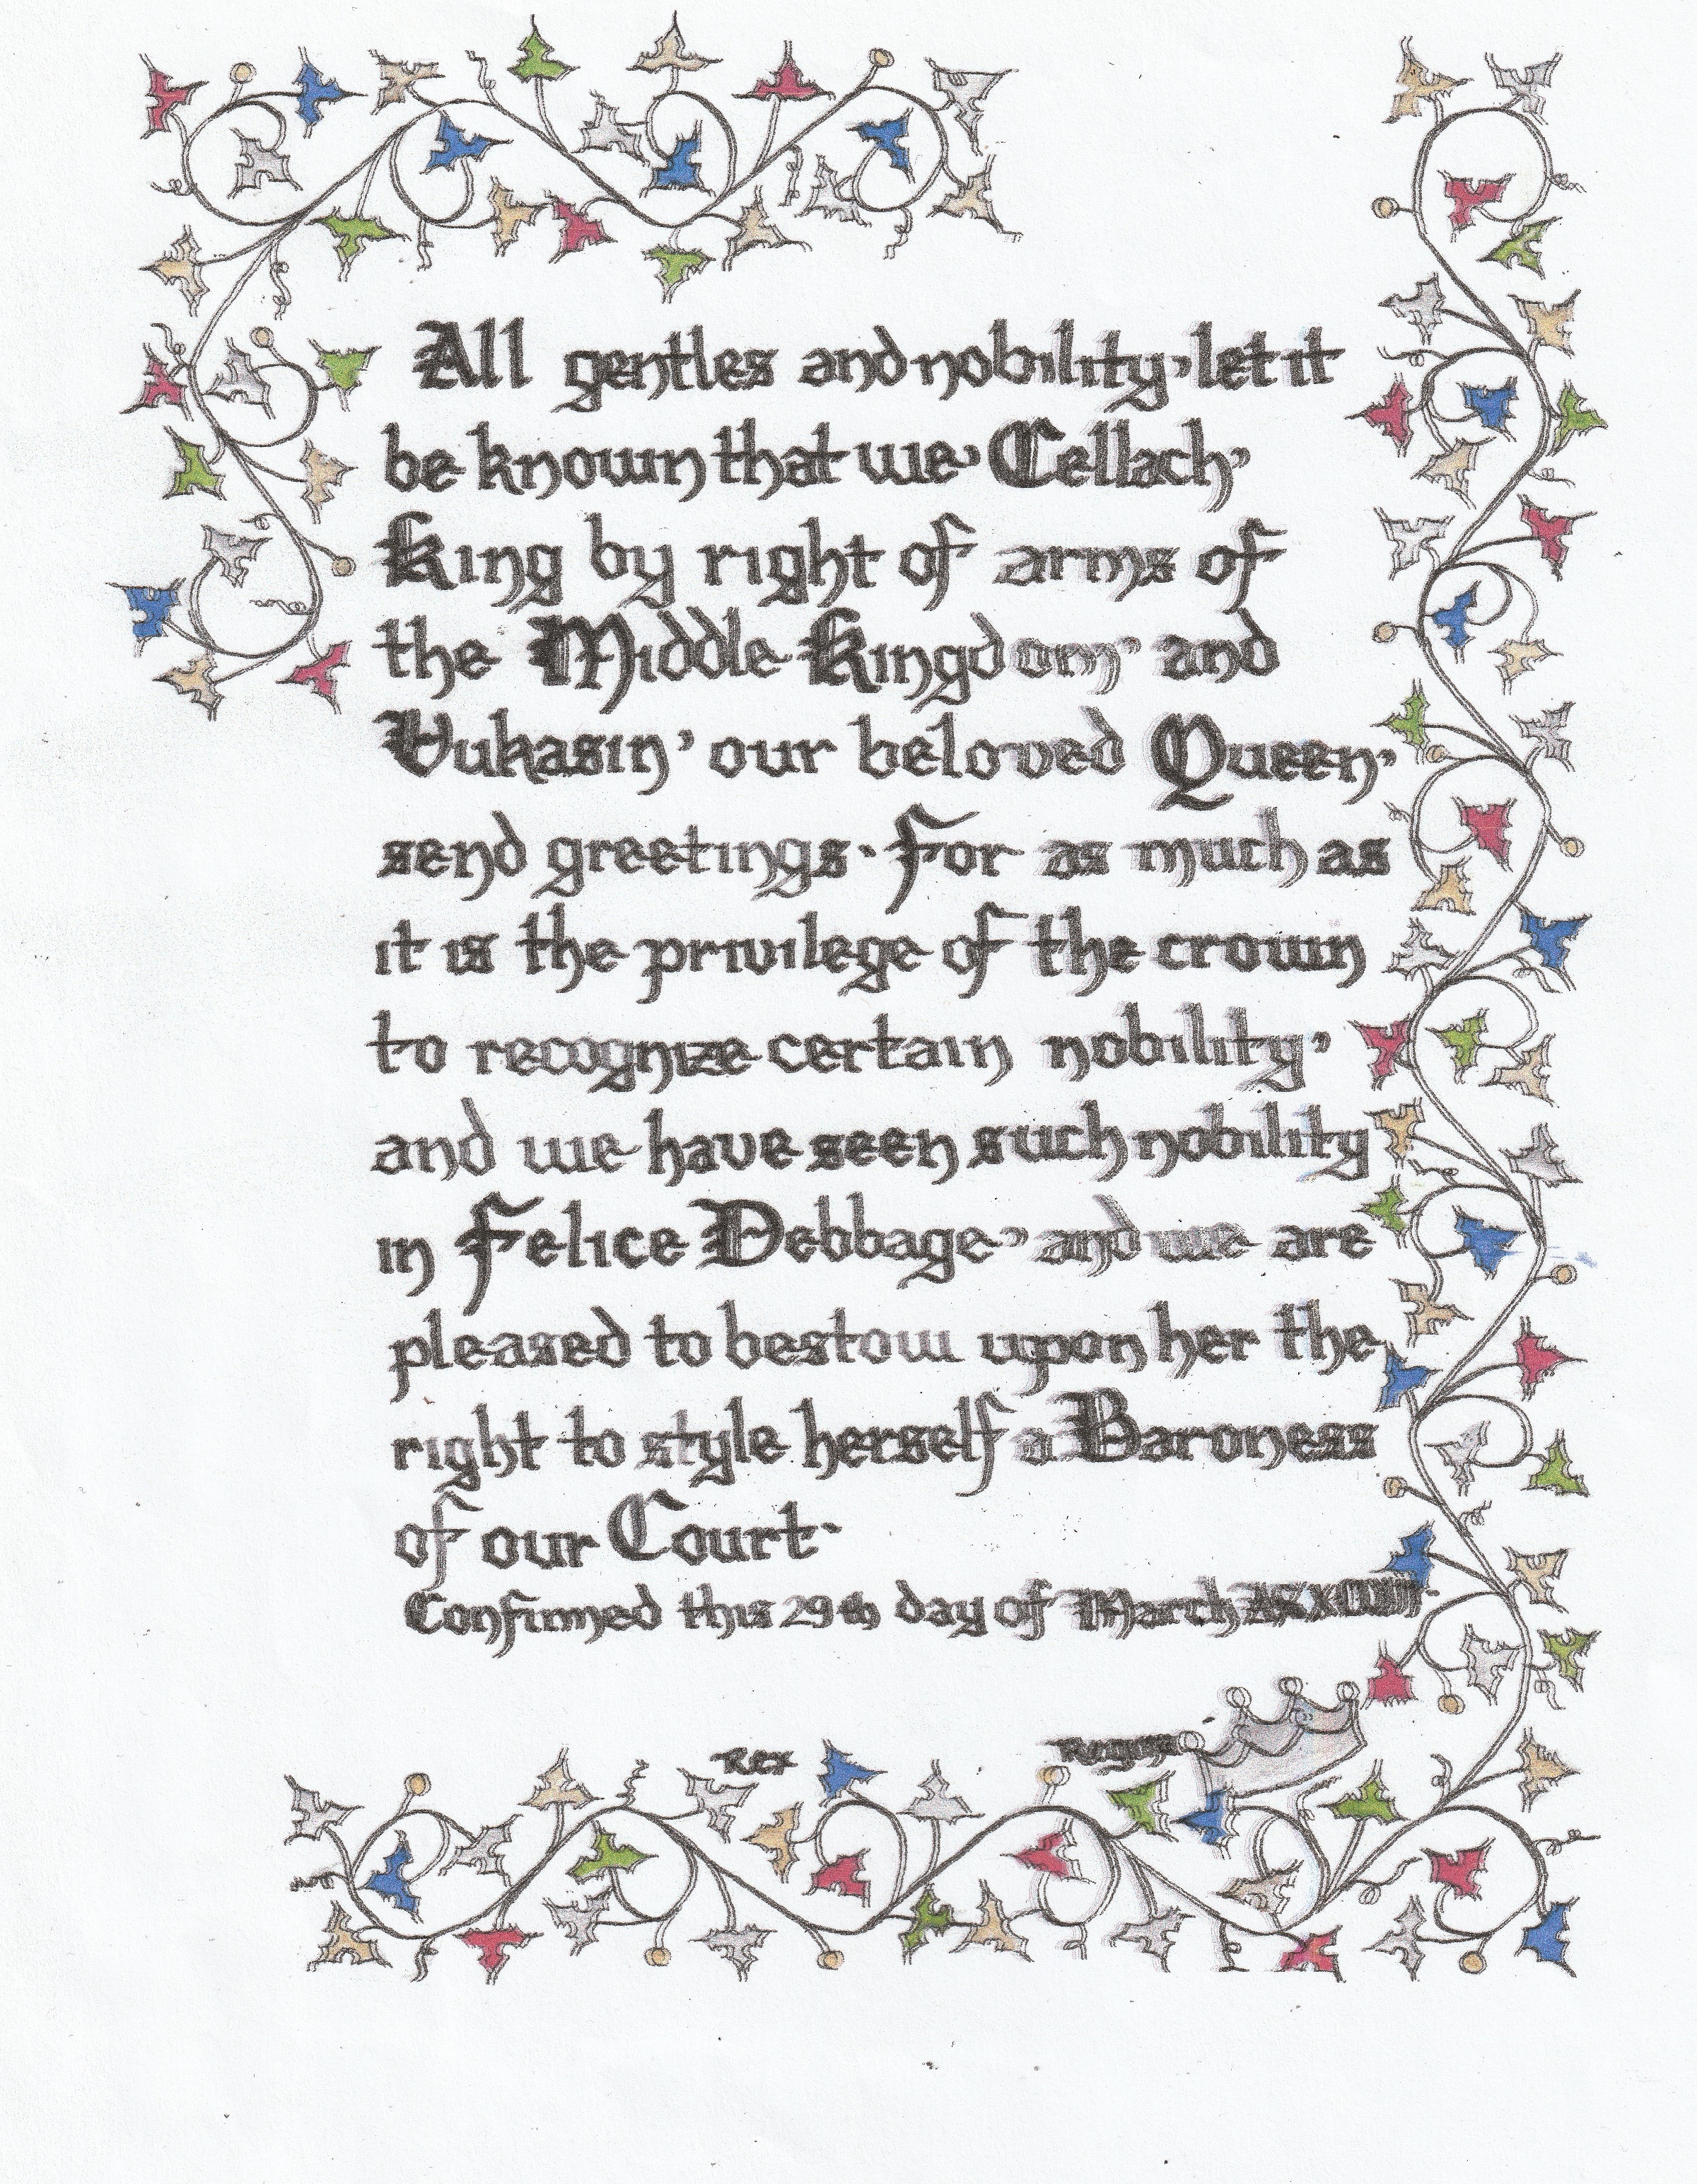 All gentles and nobility, let it
be known that we, Cellach,
King by right of arms of
the Middle Kingdom, and
Vukasin, our beloved Queen,
send greetings. For as much as
it is the privilege of the crown
to recognize certain nobility,
and we have seen such nobility
in Felice Debbage, and we are
pleased to bestow upon her the
right to style herself a Baroness
of our Court.
Confirmed this 29th day of March
Rex Regina